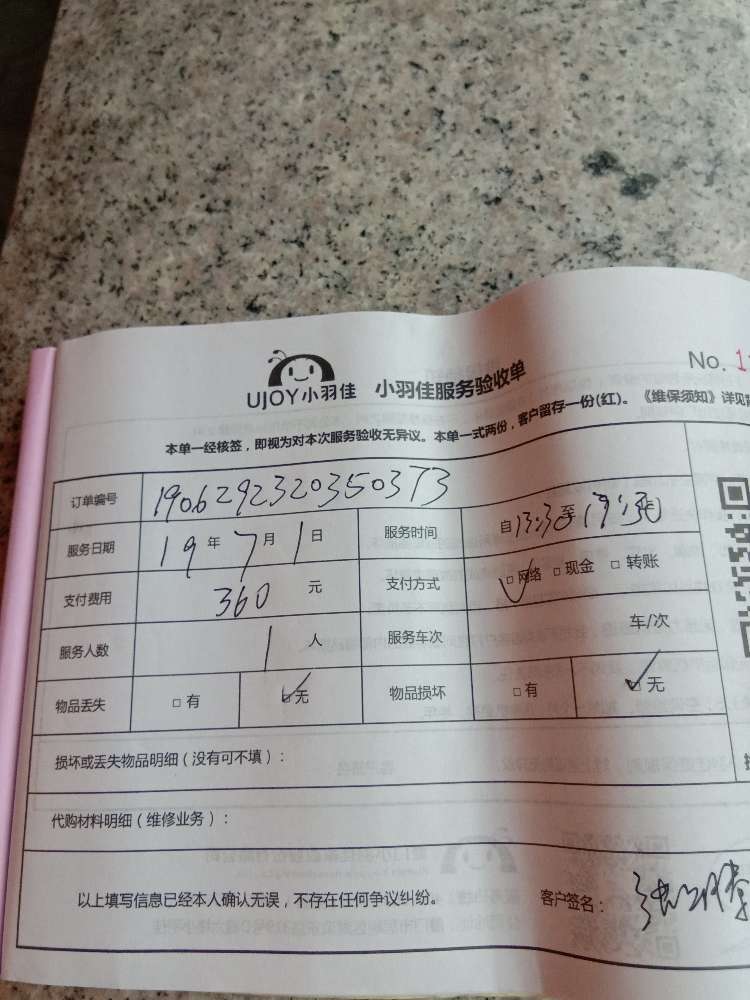 UJOY小羽佳 小羽佳服务验收单 No. 1
本单一经核签，即视为对本次服务验收无异议。本单一式两份，客户留存一份(红)。《维保须知》详见
订单编号 1906292320350373
服务日期 19 年 7 月 1 日 服务时间 自 13:30 至 19:30
支付费用 360 元 支付方式 □网络 □现金 □转账
服务人数 1 人 服务车次 车/次
物品丢失 □有 □无 物品损坏 □有 □无
损坏或丢失物品明细（没有可不填）：
代购材料明细（维修业务）：
以上填写信息已经本人确认无误，不存在任何争议纠纷。 客户签名：